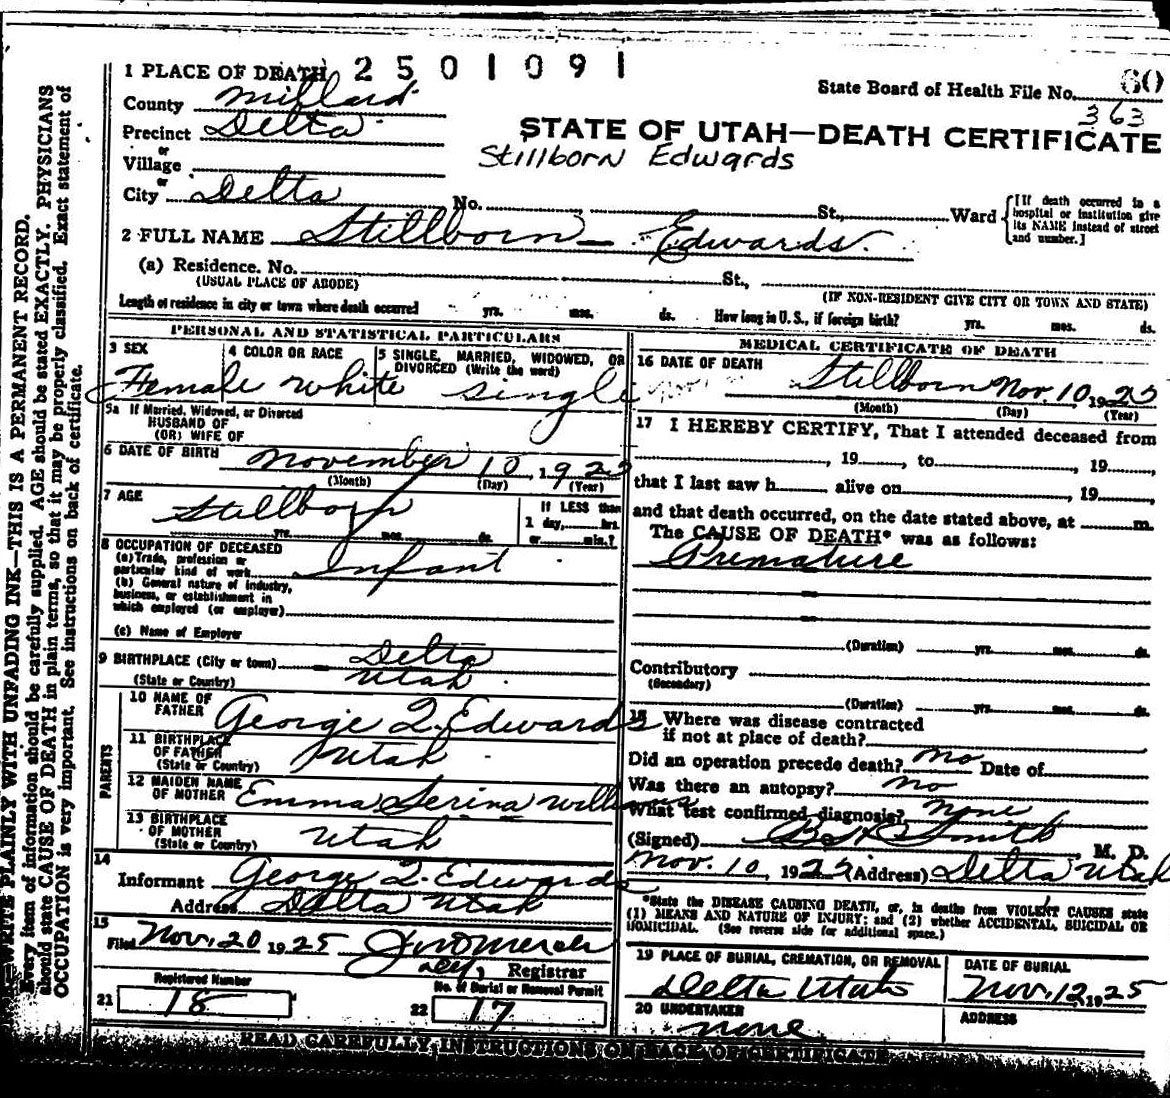 1 PLACE OF DEATH 2501091
State Board of Health File No. 60
363
County Millard
Precinct Delta
STATE OF UTAH—DEATH CERTIFICATE
Stillborn Edwards
or
Village
or
City Delta No. St., Ward
[If death occurred in a hospital or institution give its NAME instead of street and number.]
2 FULL NAME Stillborn — Edwards.
(a) Residence. No. St.,
(USUAL PLACE OF ABODE) (IF NON-RESIDENT GIVE CITY OR TOWN AND STATE)
Length of residence in city or town where death occurred yrs. mos. ds. How long in U. S., if foreign birth? yrs. mos. ds.
PERSONAL AND STATISTICAL PARTICULARS
3 SEX 4 COLOR OR RACE 5 SINGLE, MARRIED, WIDOWED, OR
DIVORCED (Write the word)
Female white single
5a If Married, Widowed, or Divorced
HUSBAND OF
(OR) WIFE OF
6 DATE OF BIRTH November 10, 1925
(Month) (Day) (Year)
7 AGE Stillborn If LESS than
1 day, hrs.
yrs. mos. ds. or min.?
8 OCCUPATION OF DECEASED
(a) Trade, profession or
particular kind of work Infant
(b) General nature of industry,
business, or establishment in
which employed (or employer)
(c) Name of Employer
9 BIRTHPLACE (City or town) Delta
(State or Country) Utah
PARENTS
10 NAME OF
FATHER George Q. Edwards
11 BIRTHPLACE
OF FATHER
(State or Country) Utah
12 MAIDEN NAME
OF MOTHER Emma Serina Williams
13 BIRTHPLACE
OF MOTHER
(State or Country) Utah
14
Informant George Q. Edwards
Address Delta Utah
15
Filed Nov. 20 1925
Registrar
Registered Number No. of Burial or Removal Permit
21 18 22 17
MEDICAL CERTIFICATE OF DEATH
16 DATE OF DEATH Stillborn Nov. 10 1925
(Month) (Day) (Year)
17 I HEREBY CERTIFY, That I attended deceased from
, 19, to, 19,
that I last saw h alive on, 19,
and that death occurred, on the date stated above, at m.
The CAUSE OF DEATH* was as follows:
Premature
(Duration) yrs. mos. ds.
Contributory
(Secondary)
(Duration) yrs. mos. ds.
18 Where was disease contracted
if not at place of death?
Did an operation precede death? no Date of
Was there an autopsy? no
What test confirmed diagnosis? none
(Signed) Smith M. D.
Nov. 10, 1925 (Address) Delta Utah
*State the DISEASE CAUSING DEATH, or, in deaths from VIOLENT CAUSES state
(1) MEANS AND NATURE OF INJURY; and (2) whether ACCIDENTAL, SUICIDAL OR
HOMICIDAL. (See reverse side for additional space.)
19 PLACE OF BURIAL, CREMATION, OR REMOVAL DATE OF BURIAL
Delta Utah Nov. 12, 1925
20 UNDERTAKER ADDRESS
none
READ CAREFULLY INSTRUCTIONS ON BACK OF CERTIFICATE
WRITE PLAINLY WITH UNFADING INK—THIS IS A PERMANENT RECORD.
Every item of information should be carefully supplied. AGE should be stated EXACTLY. PHYSICIANS
should state CAUSE OF DEATH in plain terms, so that it may be properly classified. Exact statement of
OCCUPATION is very important. See instructions on back of certificate.